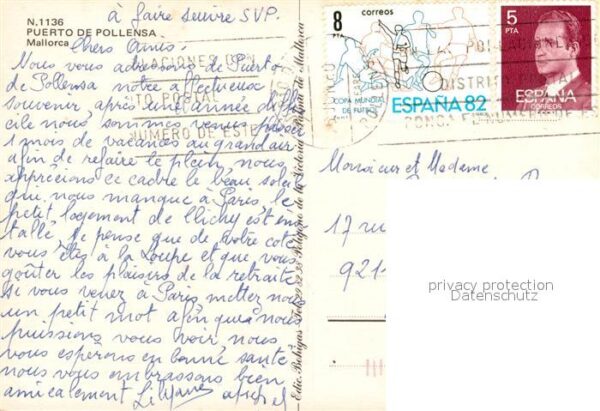 à faire suivre S.V.P.
N.1136
PUERTO DE POLLENSA
Mallorca
Chers Amis.
Nous vous adressons de Puerto
de Pollensa notre affectueux
souvenir après une année diffi
cile nous sommes venus passer
1 mois de vacances au grand air
afin de refaire le plein, nous
apprécions ce cadre le beau soleil
qui nous manque à Paris, le
petit logement de Clichy est en
tallé. Je pense que de votre coté
vous êtes à la Loupe et que vous
goûter les plaisirs de la retraite
si vous venez à Paris mettez nous
un petit mot afin que nous
puissions vous voir, nous
vous esperons en bonne santé
nous vous embrassons bien
amicalement
8
PTA
correos
COPA MUNDIAL
DE FUTBOL
ESPAÑA 82
5
PTA
ESPAÑA
CORREOS
POBLACIONES
DISTRITO POSTAL
PONGA EL NUMERO DE
NUMERO DE ESTE
Monsieur et Madame
17 rue
921
privacy protection
Datenschutz